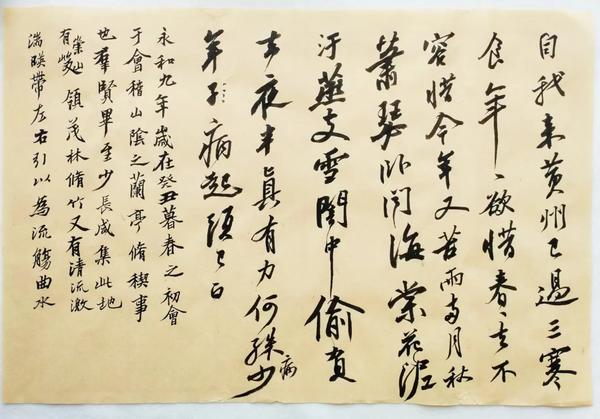 自我来黄州已過三寒
食年、欲惜春、去不
容惜今年又苦雨兩月秋
蕭瑟卧聞海棠花泥
汙燕支雪闇中偷負
去夜半真有力何殊少病
年子病起頭已白
永和九年歲在癸丑暮春之初會
于會稽山陰之蘭亭脩稧事
也羣賢畢至少長咸集此地
有崇山峻領茂林脩竹又有清流激
湍暎帶左右引以為流觴曲水